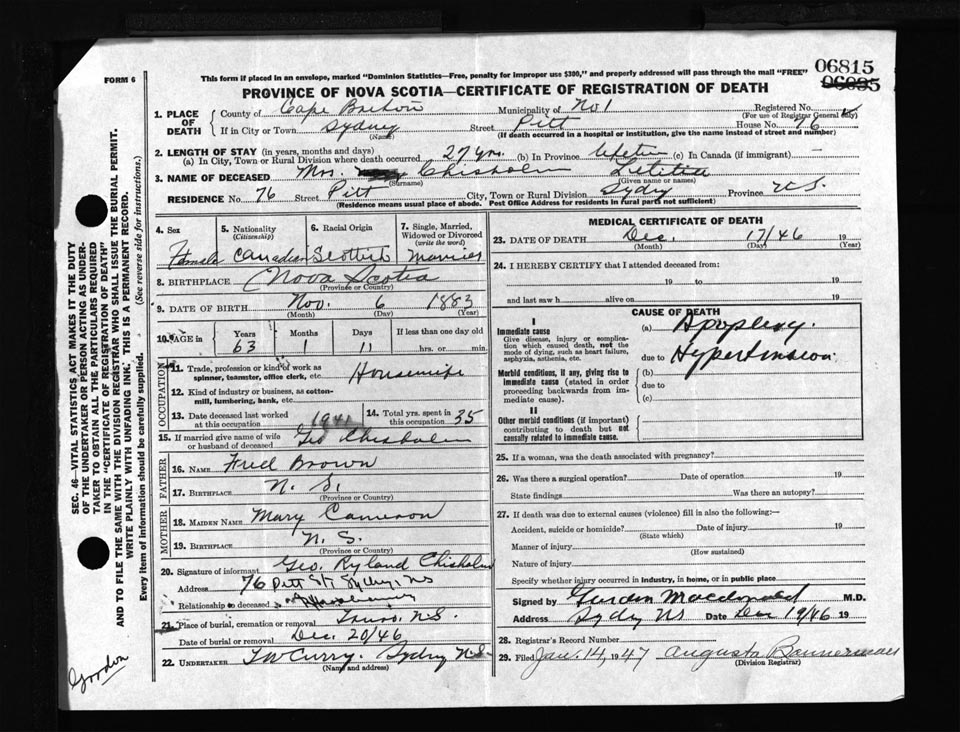 06815
06035
FORM 6
This form if placed in an envelope, marked "Dominion Statistics—Free, penalty for improper use $300," and properly addressed will pass through the mail "FREE"
PROVINCE OF NOVA SCOTIA—CERTIFICATE OF REGISTRATION OF DEATH
1. PLACE OF DEATH
County of Cape Breton Municipality of No 1 Registered No.
(For use of Registrar General only)
If in City or Town Sydney Street Pitt House No. 76
(Name) (If death occurred in a hospital or institution, give the name instead of street and number)
2. LENGTH OF STAY (in years, months and days)
(a) In City, Town or Rural Division where death occurred 27 yrs. (b) In Province Lifetime (c) In Canada (if immigrant) —
3. NAME OF DECEASED Mrs. Chisholm Letitia
(Surname) (Given name or names)
RESIDENCE No. 76 Street Pitt City, Town or Rural Division Sydny Province N.S.
(Residence means usual place of abode. Post Office Address for residents in rural parts not sufficient)
4. Sex
Female
5. Nationality
(Citizenship)
Canadian
6. Racial Origin
Scottish
7. Single, Married, Widowed or Divorced
(write the word)
Married
8. BIRTHPLACE Nova Scotia
(Province or Country)
9. DATE OF BIRTH Nov. 6 1883
(Month) (Day) (Year)
10. AGE in Years Months Days If less than one day old
63 1 11 hrs. or min.
OCCUPATION
11. Trade, profession or kind of work as Housewife
spinner, teamster, office clerk, etc.
12. Kind of industry or business, as cotton-
mill, lumbering, bank, etc.
13. Date deceased last worked at this occupation 1941
14. Total yrs. spent in this occupation 35
15. If married give name of wife or husband of deceased Geo Chisholm
FATHER
16. NAME Fred Brown
17. BIRTHPLACE N. S.
(Province or Country)
MOTHER
18. MAIDEN NAME Mary Cameron
19. BIRTHPLACE N. S.
(Province or Country)
20. Signature of informant Geo. Ryland Chisholm
Address 76 Pitt St. Sydney, NS
Relationship to deceased
21. Place of burial, cremation or removal Truro. N.S.
Date of burial or removal Dec. 20/46
22. UNDERTAKER T W Curry. Sydney N.S.
(Name and address)
MEDICAL CERTIFICATE OF DEATH
23. DATE OF DEATH Dec. 17/46 19
(Month) (Day) (Year)
24. I HEREBY CERTIFY that I attended deceased from:
19 to 19
and last saw h alive on 19
CAUSE OF DEATH
I
Immediate cause (a) Apoplexy.
Give disease, injury or complica-
tion which caused death, not the
mode of dying, such as heart failure,
asphyxia, asthenia, etc.
due to Hypertension
Morbid conditions, if any, giving rise to (b)
immediate cause (stated in order due to
proceeding backwards from im-
mediate cause). (c)
II
Other morbid conditions (if important)
contributing to death but not
causally related to immediate cause.
25. If a woman, was the death associated with pregnancy?
26. Was there a surgical operation? Date of operation 19
State findings Was there an autopsy?
27. If death was due to external causes (violence) fill in also the following:—
Accident, suicide or homicide? Date of injury 19
(State which)
Manner of injury
(How sustained)
Nature of injury
Specify whether injury occurred in industry, in home, or in public place
Signed by Gordon Macdonald M.D.
Address Sydny NS Date Dec 19/46 19
28. Registrar's Record Number
29. Filed Jan. 14, 1947 Augusta Bannerman
(Division Registrar)
SEC. 46—VITAL STATISTICS ACT MAKES IT THE DUTY
OF THE UNDERTAKER OR PERSON ACTING AS UNDER-
TAKER TO OBTAIN ALL THE PARTICULARS REQUIRED
IN THE "CERTIFICATE OF REGISTRATION OF DEATH"
AND TO FILE THE SAME WITH THE DIVISION REGISTRAR WHO SHALL ISSUE THE BURIAL PERMIT.
WRITE PLAINLY WITH UNFADING INK. THIS IS A PERMANENT RECORD.
Every item of information should be carefully supplied. (See reverse side for instructions.)
Gordon